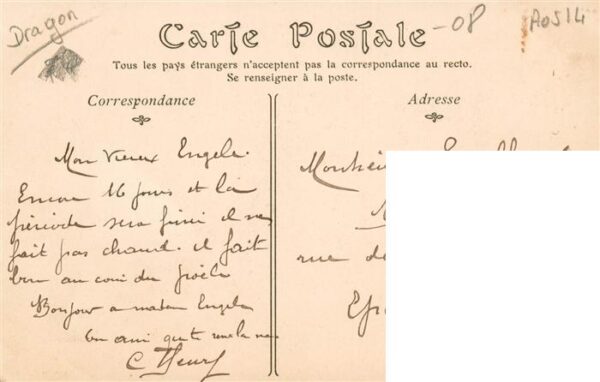 Dragon
-08
A0514
Carte Postale
Tous les pays étrangers n'acceptent pas la correspondance au recto.
Se renseigner à la poste.
Correspondance
Adresse
Mon vieux Engele.
Encore 16 jours et la
période sera fini il ne
fait pas chaud. il fait
bon au coin du poële
Bonjour a madam Engele
un ami qui te serre la main
C Fleury
Monsieur
rue de